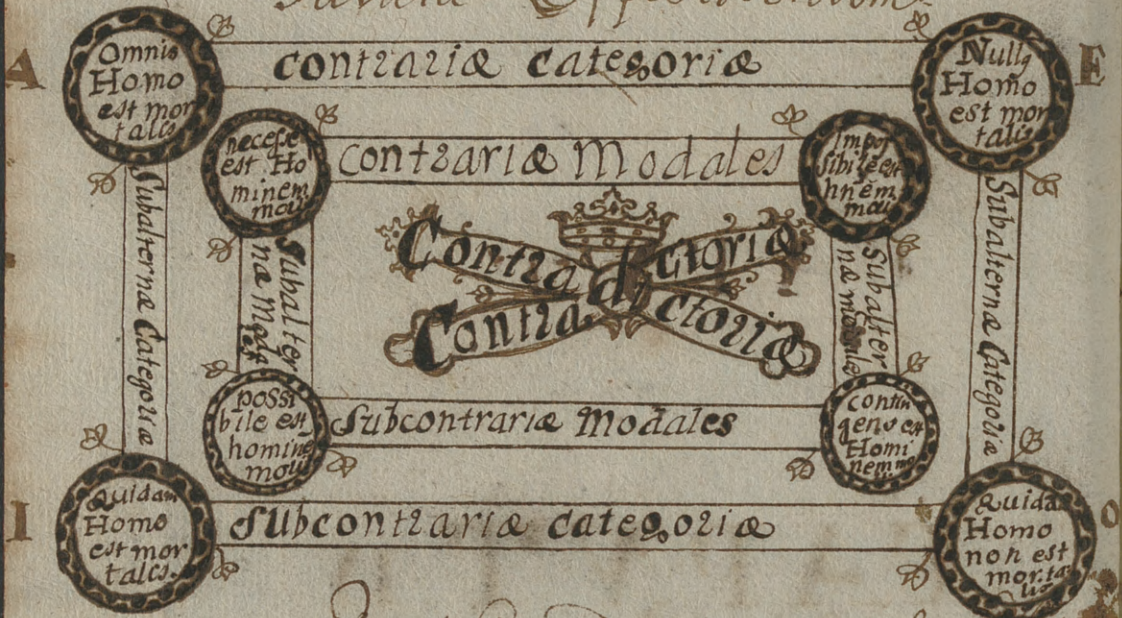 A
Omnis
Homo
est mor
talis
contrariæ categoriæ
Nullq
Homo
est mor
talis
E
necesse
est Ho
minem
mou
contrariæ Modales
Impos
sibile est
hnem
mou
Subalternæ Categoriæ
Subalter
næ
Contradictoriæ
Contradictoriæ
Subalter
næ
Subalternæ Categoriæ
possi
bile est
homine
mou
Subcontrariæ Modales
contin
gens est
Homi
nem
I
Quidam
Homo
est mor
talis.
Subcontrariæ categoriæ
Quida
Homo
non est
morta
lis
O